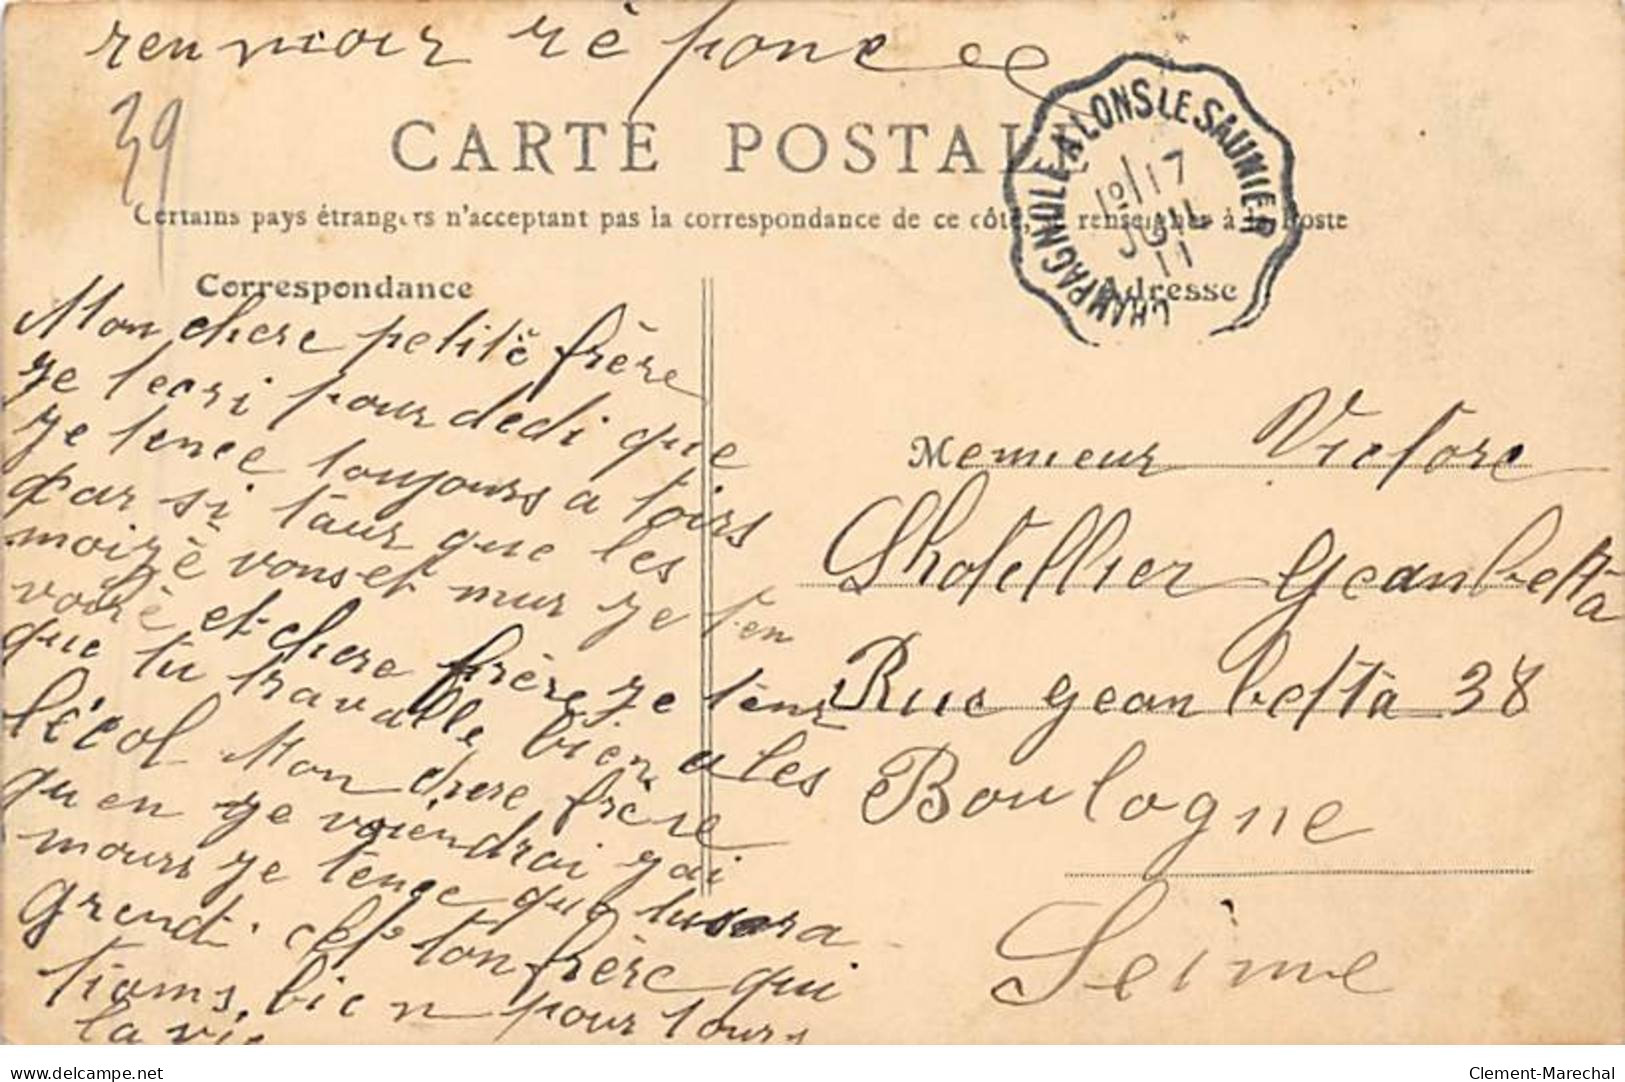 renvoir réponce
39
CARTE POSTALE
Certains pays étrangers n'acceptant pas la correspondance de ce côté, se renseigner à la Poste
CHAMPAGNOLE A LONS LE SAUNIER
17
JUIL
11
Correspondance
Adresse
Mon chere petite frère
je tecri pour dedi que
je tence toujours a toirs
par si taur que les
moizè vonset mur je ten
voire et chere frère je tens
que tu travalle bien a les
lécol Mon chere frère
qu en je voiendrai jai
mours je tence que tu sera
grend. cet ton frère qui
tiams bien pour tours
la vie
Memieur Victore
Lhotellier geanbetta
Rue geanbetta 38
Boulogne
Seime
Clement-Marechal
delcampe.net